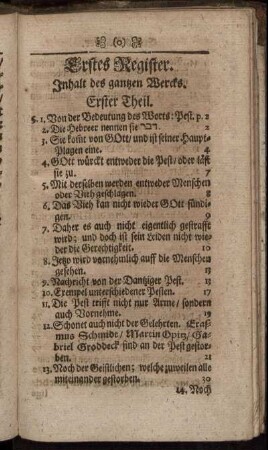 (0)
Erstes Register.
Inhalt des gantzen Wercks.
Erster Theil.
§. 1. Von der Bedeutung des Worts: Pest. p. 2
2. Die Hebreer nennen sie דבר 2
3. Sie kom̃t von GOtt/ und ist seiner Haupt-
Plagen eine. 4
4. GOtt würckt entweder die Pest/ oder läst
sie zu. 7
5. Mit derselben werden entweder Menschen
oder Vieh geschlagen. 8
6. Das Vieh kan nicht wieder GOtt sündi-
gen. 9
7. Daher es auch nicht eigentlich gestrafft
wird; und doch ist sein Leiden nicht wie-
der die Gerechtigkeit. 10
8. Jetzo wird vornehmlich auff die Menschen
gesehen. 13
9. Nachricht von der Dantziger Pest. 13
10. Exempel unterschiedener Pesten. 17
11. Die Pest trifft nicht nur Arme/ sondern
auch Vornehme. 19
12. Schonet auch nicht der Gelehrten. Eraß-
mus Schmidt/ Martin Opitz/ Ga-
briel Groddeck sind an der Pest gestor-
ben. 21
13. Noch der Geistlichen; welche zuweilen alle
miteinander gestorben. 30
14. Noch